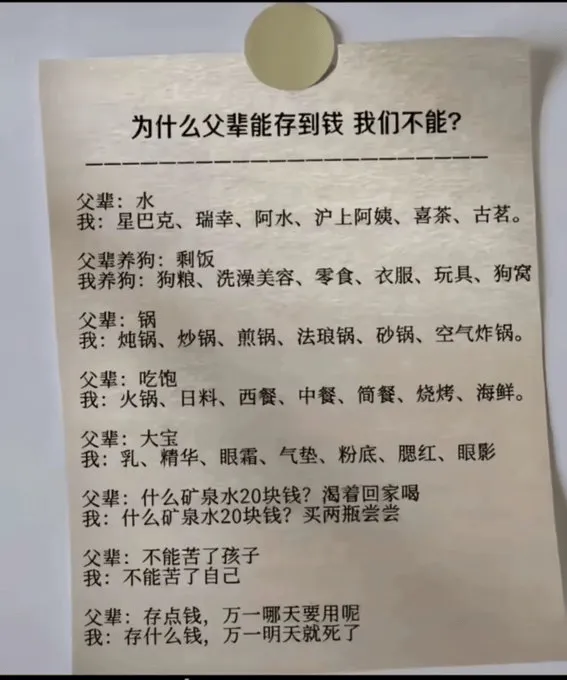 为什么父辈能存到钱 我们不能?
父辈：水
我：星巴克、瑞幸、阿水、沪上阿姨、喜茶、古茗。
父辈养狗：剩饭
我养狗：狗粮、洗澡美容、零食、衣服、玩具、狗窝
父辈：锅
我：炖锅、炒锅、煎锅、法琅锅、砂锅、空气炸锅。
父辈：吃饱
我：火锅、日料、西餐、中餐、简餐、烧烤、海鲜。
父辈：大宝
我：乳、精华、眼霜、气垫、粉底、腮红、眼影
父辈：什么矿泉水20块钱？渴着回家喝
我：什么矿泉水20块钱？买两瓶尝尝
父辈：不能苦了孩子
我：不能苦了自己
父辈：存点钱，万一哪天要用呢
我：存什么钱，万一明天就死了